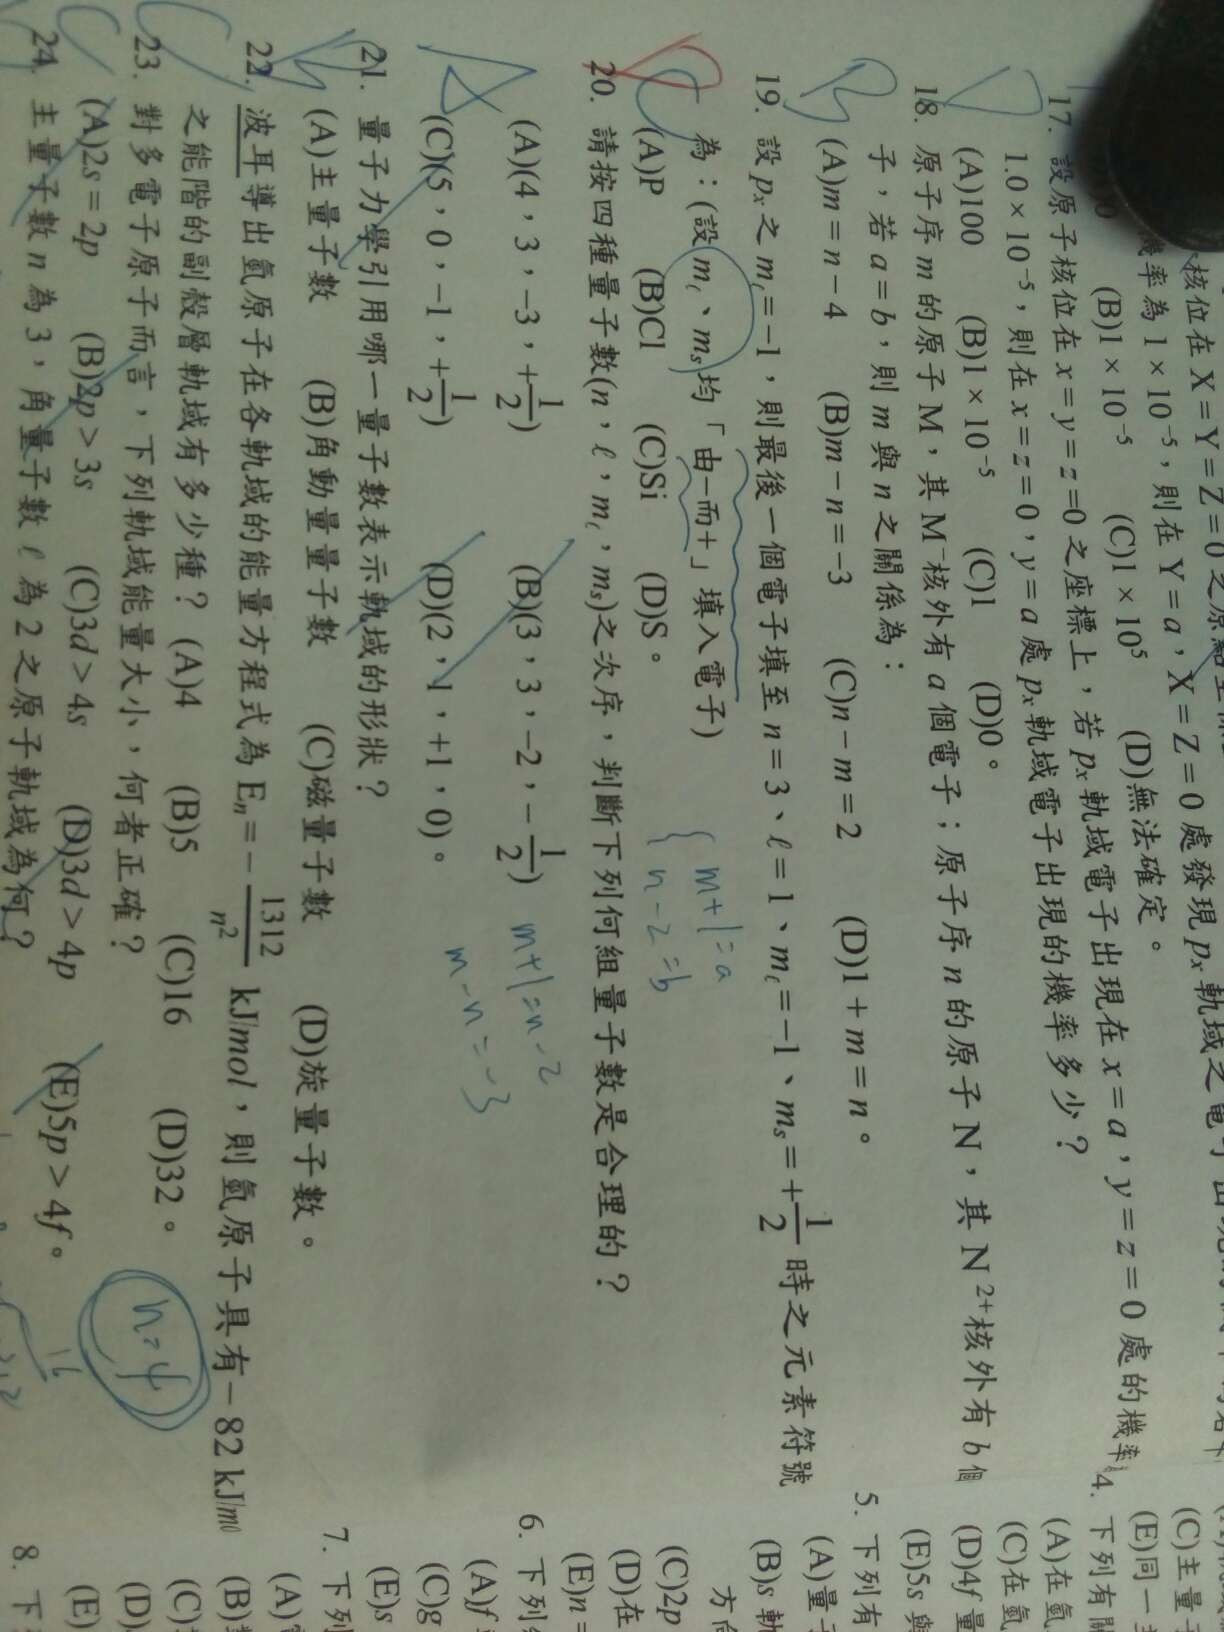 核位在 X=Y=Z=0 之原
機率為 1×10⁻⁵，則在 Y=a，X=Z=0 處發現 pₓ 軌域之電子
(B)1×10⁻⁵ (C)1×10⁵ (D)無法確定。
17. 設原子核位在 x=y=z=0 之座標上，若 pₓ 軌域電子出現在 x=a，y=z=0 處的機率
1.0×10⁻⁵，則在 x=z=0，y=a 處 pₓ 軌域電子出現的機率多少？
(A)100 (B)1×10⁻⁵ (C)1 (D)0。
18. 原子序 m 的原子 M，其 M⁻核外有 a 個電子；原子序 n 的原子 N，其 N²⁺核外有 b 個
子，若 a=b，則 m 與 n 之關係為：
(A)m=n-4 (B)m-n=-3 (C)n-m=2 (D)1+m=n。
B
19. 設 pₓ 之 mℓ=-1，則最後一個電子填至 n=3、ℓ=1、mℓ=-1、mₛ=+1/2 時之元素符號
為：(設 mℓ、mₛ 均「由-而+」填入電子)
(A)P (B)Cl (C)Si (D)S。
m+1=a
n-2=b
20. 請按四種量子數(n，ℓ，mℓ，mₛ)之次序，判斷下列何組量子數是合理的？
(A)(4，3，-3，+1/2) (B)(3，3，-2，-1/2)
m+1=n-2
(C)(5，0，-1，+1/2) (D)(2，1，+1，0)。
m-n=-3
A
21. 量子力學引用哪一量子數表示軌域的形狀？
(A)主量子數 (B)角動量量子數 (C)磁量子數 (D)旋量子數。
B
22. 波耳導出氫原子在各軌域的能量方程式為 Eₙ=-1312/n² kJ/mol，則氫原子具有-82 kJ/mo
之能階的副殼層軌域有多少種？ (A)4 (B)5 (C)16 (D)32。
n=4
23. 對多電子原子而言，下列軌域能量大小，何者正確？
(A)2s=2p (B)2p>3s (C)3d>4s (D)3d>4p (E)5p>4f。
C
24. 主量子數 n 為 3，角量子數 ℓ 為 2 之原子軌域為何？
(C)主量子
(E)同一主
4. 下列有關
(A)在氫
(C)在氫
(D)4f 量
(E)5s 與
5. 下列有
(A)量子
(B)s 軌
(C)2p
(D)在
(E)n=
6. 下列
(A)f
(C)g
(E)s
7. 下列
(A)
(B)
(C)
(D)
(E)
8. 下